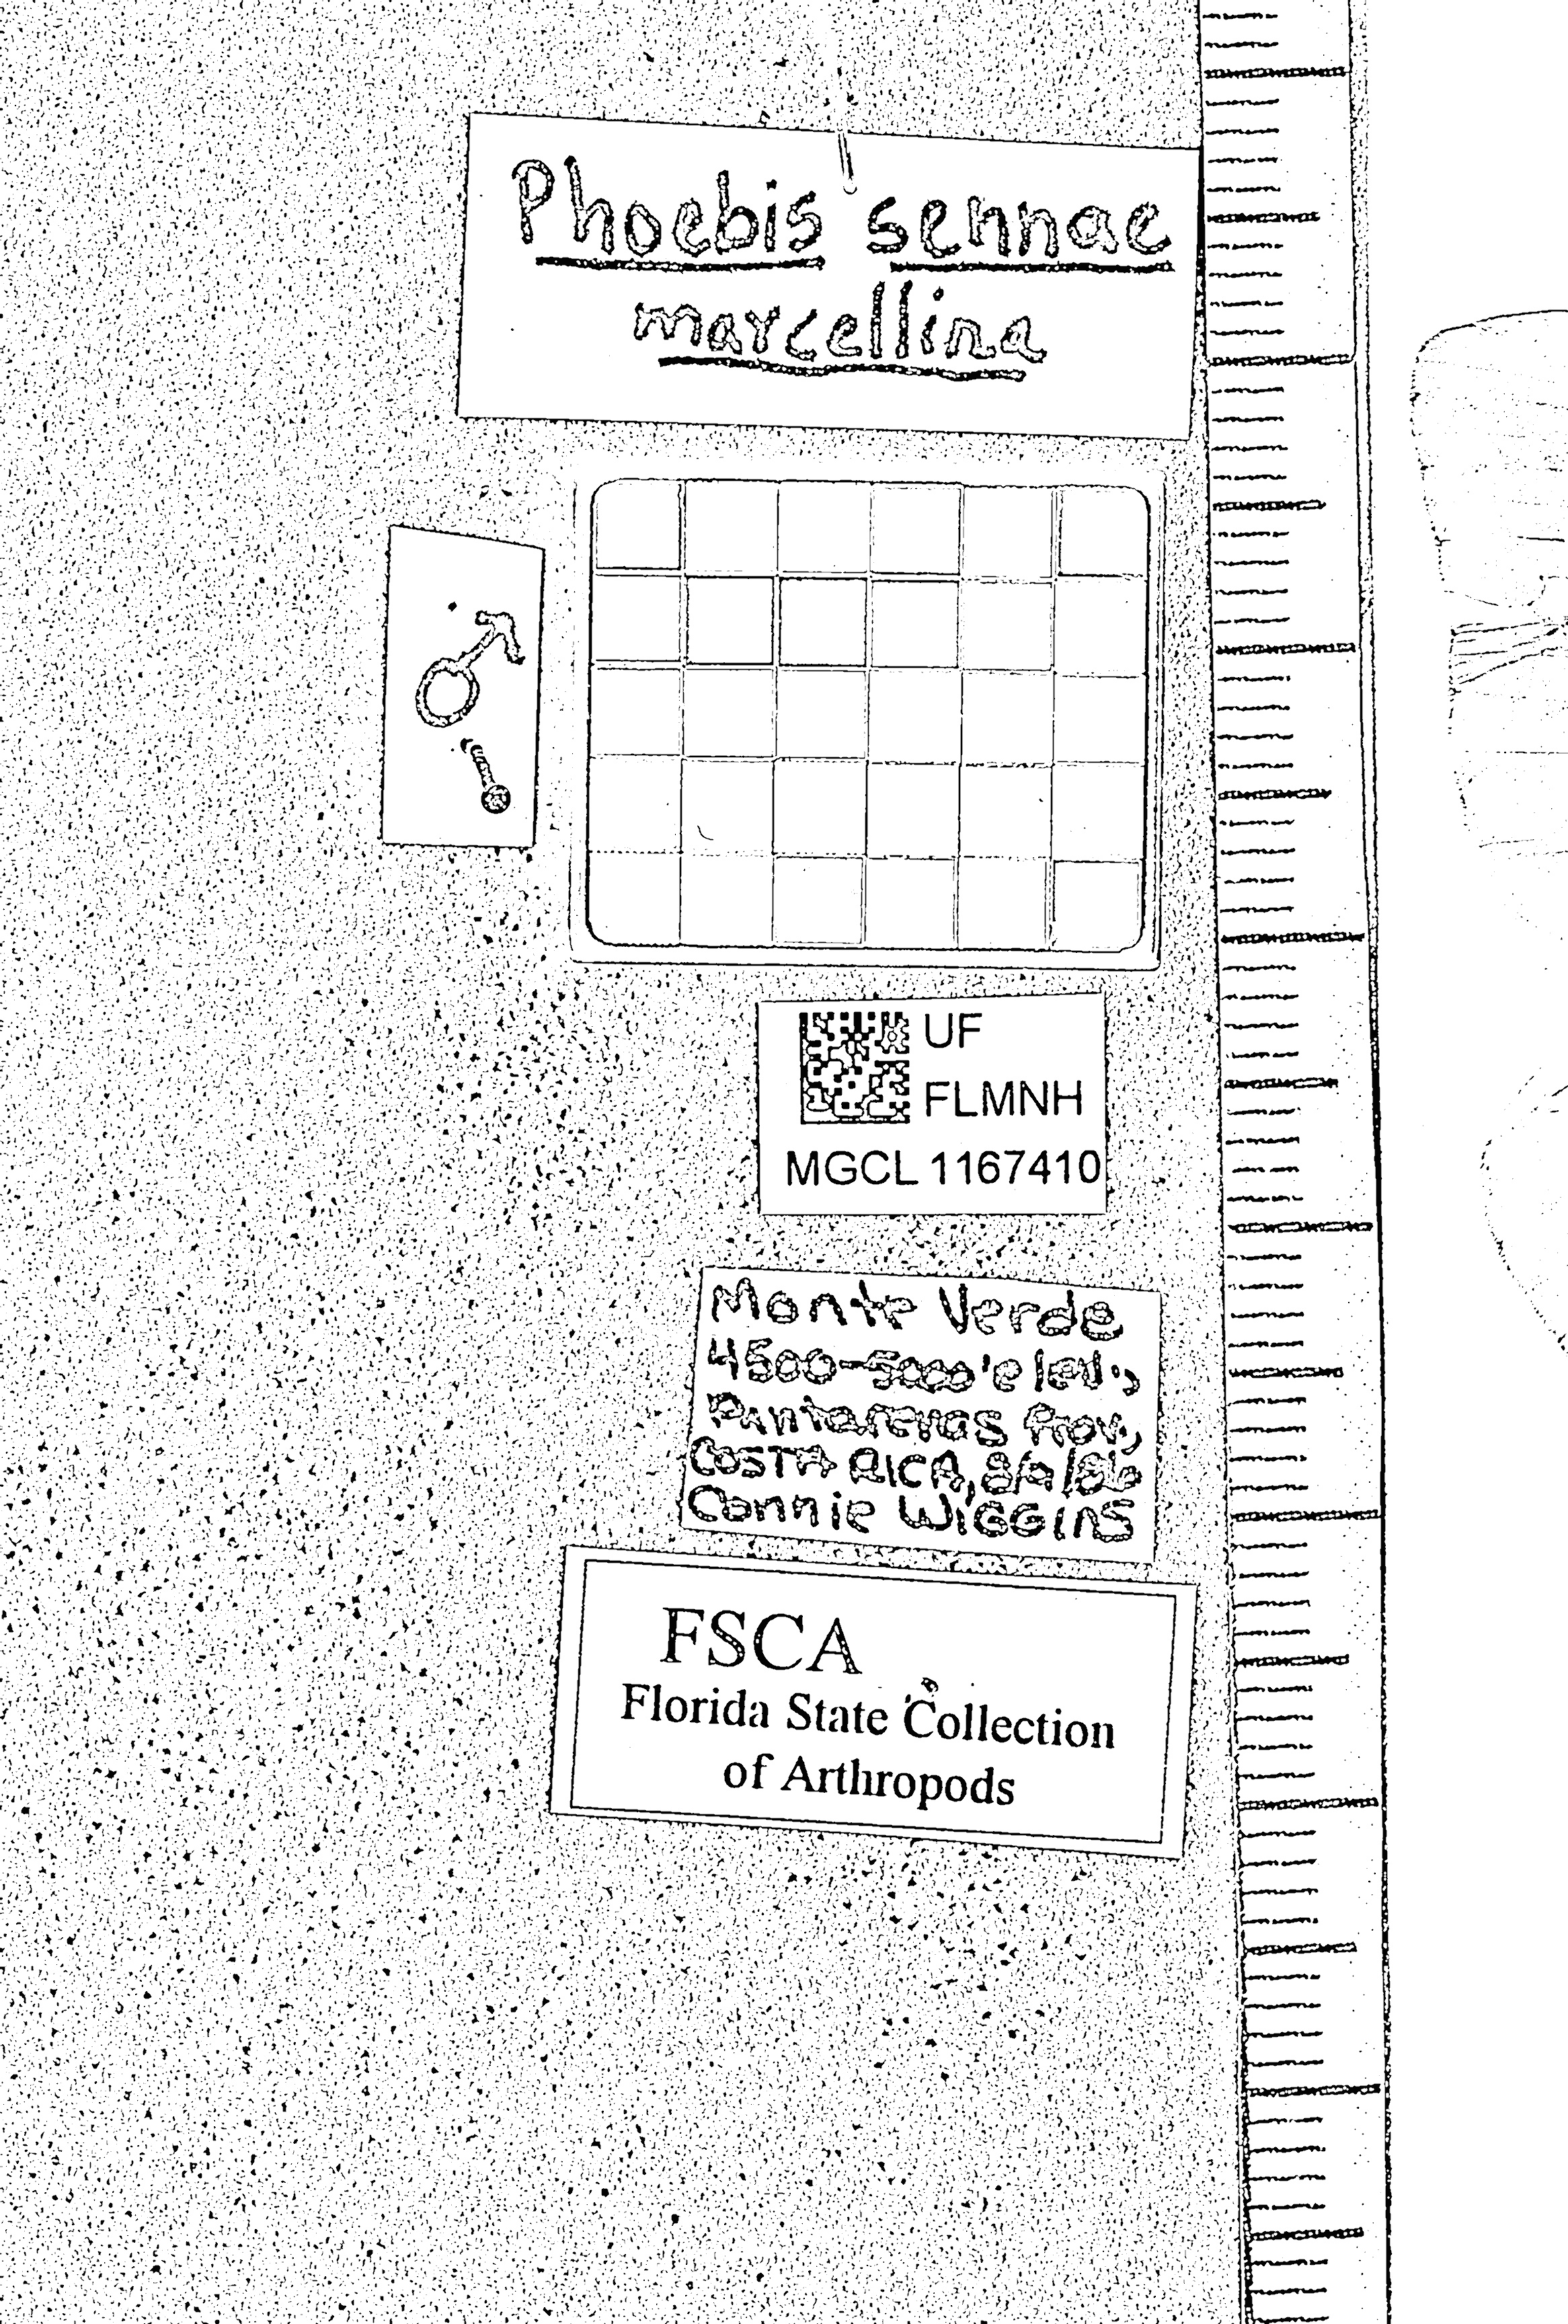 Phoebis sennae
marcellina
♂
UF
FLMNH
MGCL 1167410
Monte Verde
4500-5000' elev.,
Puntarenas Prov.,
COSTA RICA, 8/9/86
Connie WIGGINS
FSCA
Florida State Collection
of Arthropods